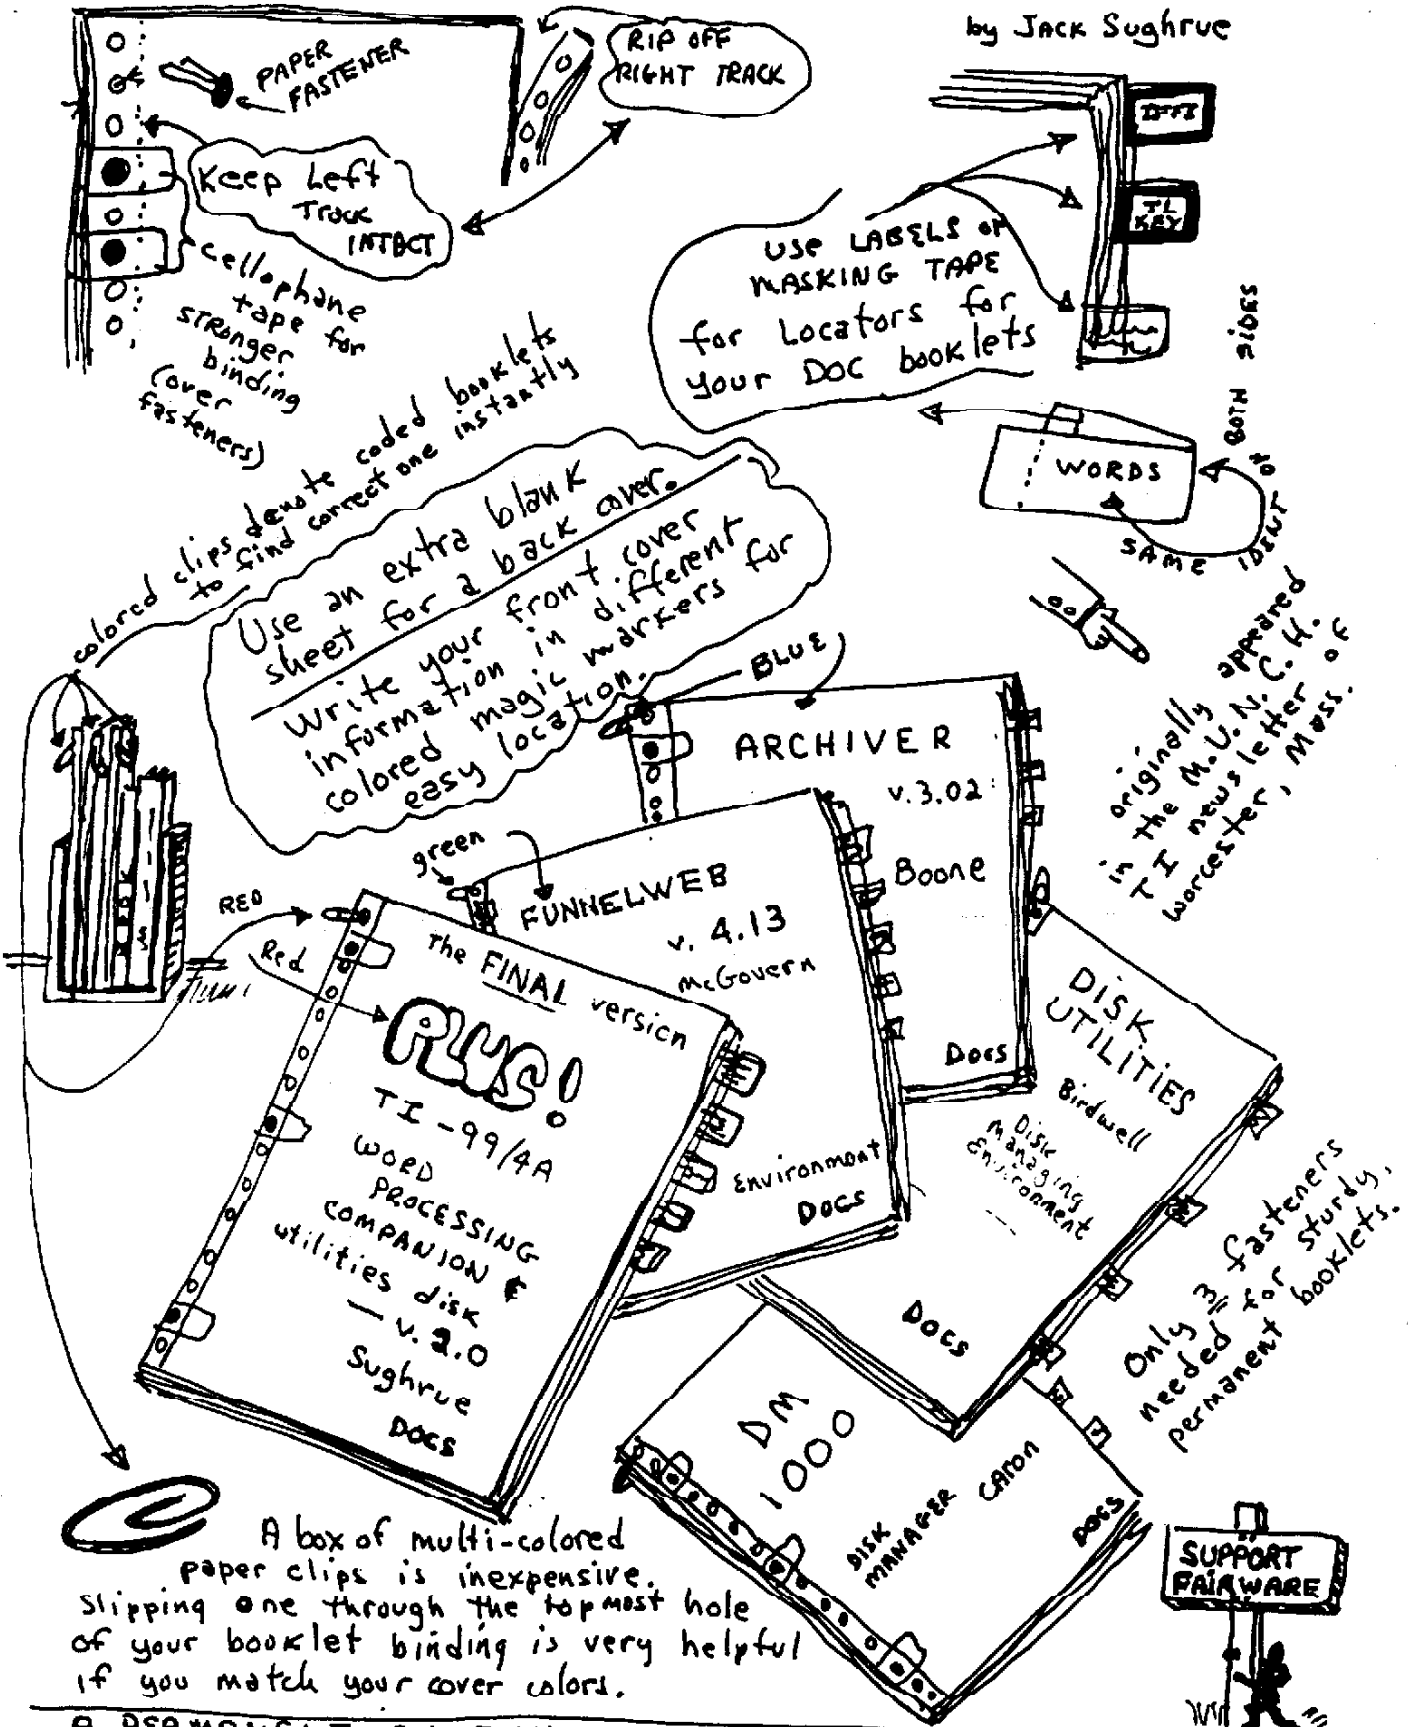 by JACK Sughrue
PAPER
FASTENER
RIP OFF
RIGHT TRACK
Keep Left
Track
INTACT
cellophane
tape for
stronger
binding
(over
fasteners)
USE LABELS or
MASKING TAPE
for Locators for
your DOC booklets
TL
KEY
WORDS
SAME
IDENT
BOTH SIDES
colored clips denote coded booklets
to find correct one instantly
Use an extra blank
sheet for a back cover.
Write your front cover
information in different
colored magic markers for
easy location.
originally appeared
in the M.U.N.C.H.
TI newsletter of
Worcester, Mass.
BLUE
ARCHIVER
v.3.02
Boone
Docs
green
FUNNELWEB
v. 4.13
McGovern
Environment
DOCS
RED
Red
The FINAL version
PLUS!
TI-99/4A
WORD
PROCESSING
COMPANION &
utilities disk
— v. 2.0
Sughrue
DOCS
DISK
UTILITIES
Birdwell
Disk
Managing
Environment
DOCS
Only 3 fasteners
needed for sturdy,
permanent booklets.
DM
1000
DISK
MANAGER
CARON
DOCS
A box of multi-colored
paper clips is inexpensive.
Slipping one through the topmost hole
of your booklet binding is very helpful
if you match your cover colors.
SUPPORT
FAIRWARE